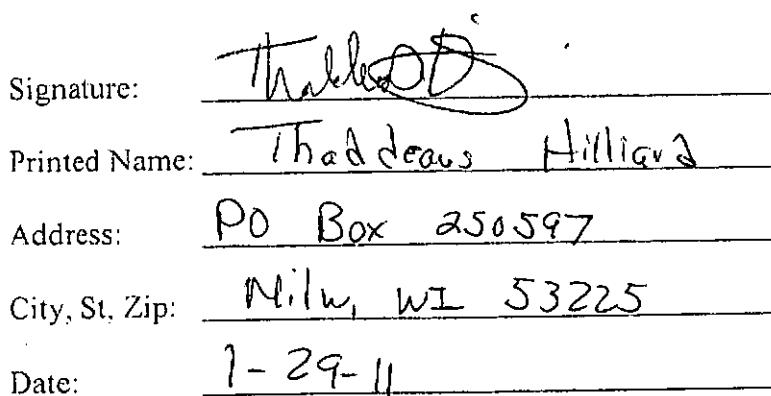 Signature:
Printed Name: Thaddeaus Hilliard
Address: PO Box 250597
City, St, Zip: Milw, WI 53225
Date: 1-29-11